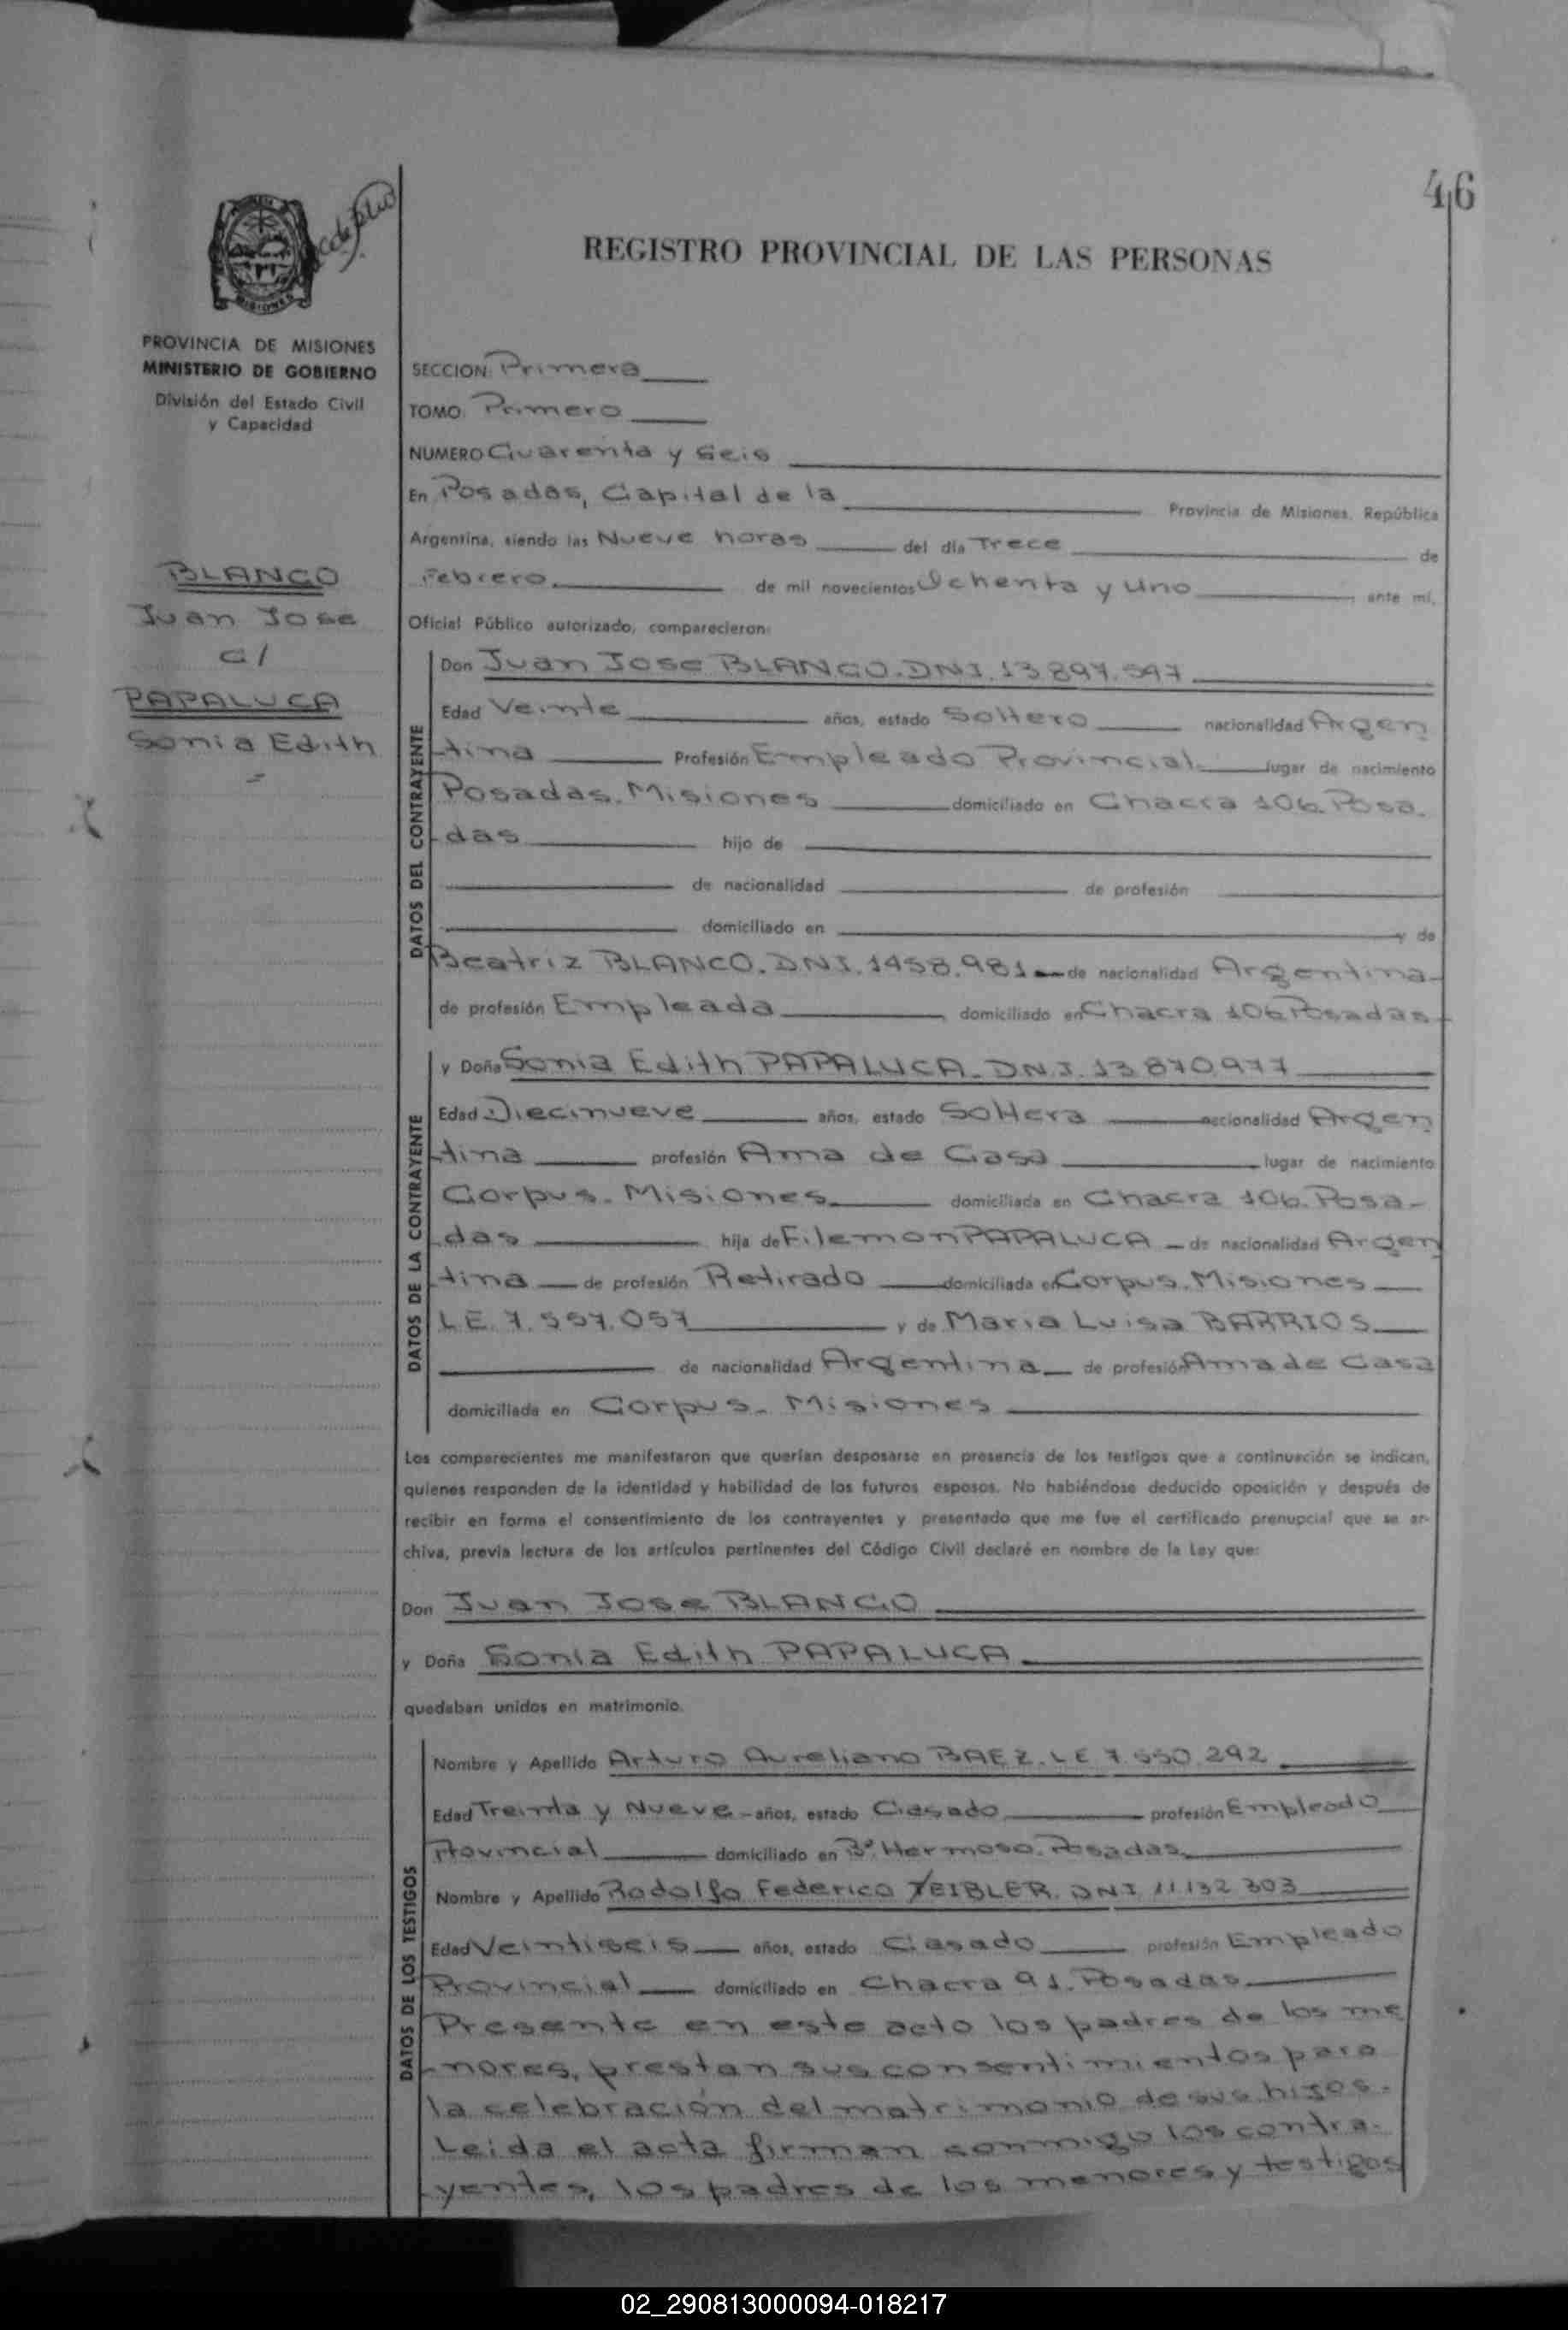 46
REGISTRO PROVINCIAL DE LAS PERSONAS
MISIONES
PROVINCIA DE MISIONES
MINISTERIO DE GOBIERNO
División del Estado Civil
y Capacidad
BLANCO
Juan Jose
c/
PAPALUCA
Sonia Edith
SECCION: Primera
TOMO: Primero
NUMERO Cuarenta y Seis
En Posadas, Capital de la Provincia de Misiones, República
Argentina, siendo las Nueve horas del día Trece de
Febrero de mil novecientos Ochenta y Uno ante mí,
Oficial Público autorizado, comparecieron:
DATOS DEL CONTRAYENTE
Don Juan Jose BLANCO. DNI. 13.897.597
Edad Veinte años, estado Soltero nacionalidad Argen
tina Profesión Empleado Provincial lugar de nacimiento
Posadas. Misiones domiciliado en Chacra 106. Posa.
das hijo de
de nacionalidad de profesión
domiciliado en y de
Beatriz BLANCO. DNI. 1458.981 de nacionalidad Argentina
de profesión Empleada domiciliado en Chacra 106 Posadas
DATOS DE LA CONTRAYENTE
y Doña Sonia Edith PAPALUCA. DN.I. 13.870.977
Edad Diecinueve años, estado Soltera nacionalidad Argen
tina profesión Ama de Casa lugar de nacimiento
Corpus. Misiones domiciliada en Chacra 106. Posa-
das hija de Filemon PAPALUCA de nacionalidad Argen
tina de profesión Retirado domiciliada en Corpus. Misiones
LE. 7.557.057 y de Maria Luisa BARRIOS
de nacionalidad Argentina de profesión Ama de Casa
domiciliada en Corpus. Misiones
Los comparecientes me manifestaron que querían desposarse en presencia de los testigos que a continuación se indican,
quienes responden de la identidad y habilidad de los futuros esposos. No habiéndose deducido oposición y después de
recibir en forma el consentimiento de los contrayentes y presentado que me fue el certificado prenupcial que se ar-
chiva, previa lectura de los artículos pertinentes del Código Civil declaré en nombre de la Ley que:
Don Juan Jose BLANCO
y Doña Sonia Edith PAPALUCA
quedaban unidos en matrimonio.
DATOS DE LOS TESTIGOS
Nombre y Apellido Arturo Aureliano BAEZ. LE 7.550.292
Edad Treinta y Nueve años, estado Casado profesión Empleado
Provincial domiciliado en Bº. Hermoso. Posadas.
Nombre y Apellido Rodolfo Federico ZEIBLER. DNI 11.132.303
Edad Veintiseis años, estado Casado profesión Empleado
Provincial domiciliado en Chacra 91. Posadas
Presente en este acto los padres de los me
nores, prestan sus consentimientos para
la celebración del matrimonio de sus hijos.
Leida el acta firman conmigo los contra-
yentes, los padres de los menores y testigos
02_290813000094-018217